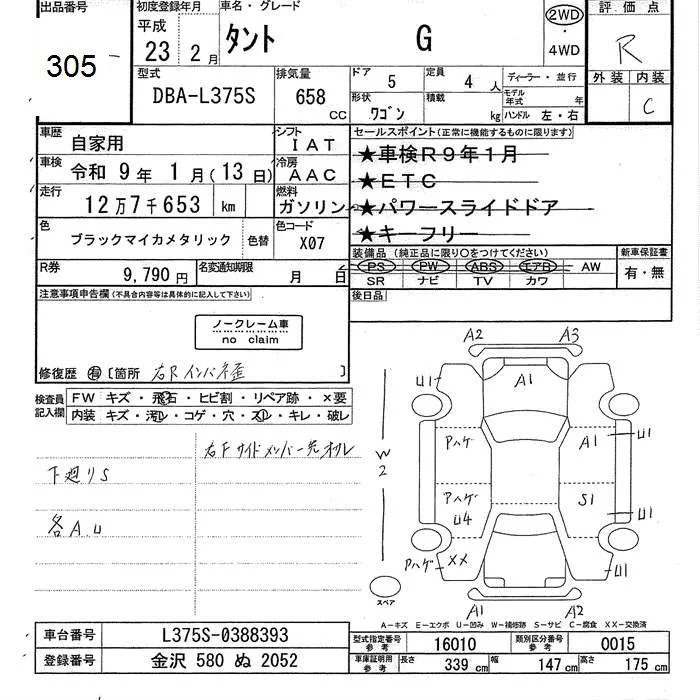 出品番号 初度登録年月 車名・グレード 評価点
305 平成 23 2月 タント G 2WD ・ 4WD R
型式 DBA-L375S 排気量 658 CC
ドア 5 定員 4 人 ディーラー・並行
形状 ワゴン 積載 kg モデル年式 年 ハンドル 左・右
外装 内装 C
車歴 自家用 シフト IAT
車検 令和 9年 1月(13日) 冷房 AAC
走行 12万7千653 km 燃料 ガソリン
色 ブラックマイカメタリック 色替 色コード X07
R券 9,790円 名変通知期限 月 日
セールスポイント(正常に機能するものに限ります)
★車検R9年1月
★ETC
★パワースライドドア
★キーフリー
装備品(純正品に限り〇をつけてください) 新車保証書
PS PW ABS エアB AW 有・無
SR ナビ TV カワ
後日品
注意事項申告欄(不具合内容等は具体的に記入して下さい)
ノークレーム車
no claim
修復歴 有 [箇所 右Rインパネ歪 ]
検査員記入欄 FW キズ・飛石・ヒビ割・リペア跡・×要
内装 キズ・汚レ・コゲ・穴・スレ・キレ・破レ
右Fサイドメンバー先オレ
下廻りS
各A.U
A2 A3
U1 A1
W2 Pハゲ A1 U1
Pハゲ U4 S1 U1
Pハゲ XX U1
スペア A1 A2
A-キズ E-エクボ U-凹み W-補修跡 S-サビ C-腐食 XX-交換済
車台番号 L375S-0388393
登録番号 金沢 580 ぬ 2052
型式指定番号 参考 16010 類別区分番号 参考 0015
車庫証明用 参考 長さ 339 cm 幅 147 cm 高さ 175 cm